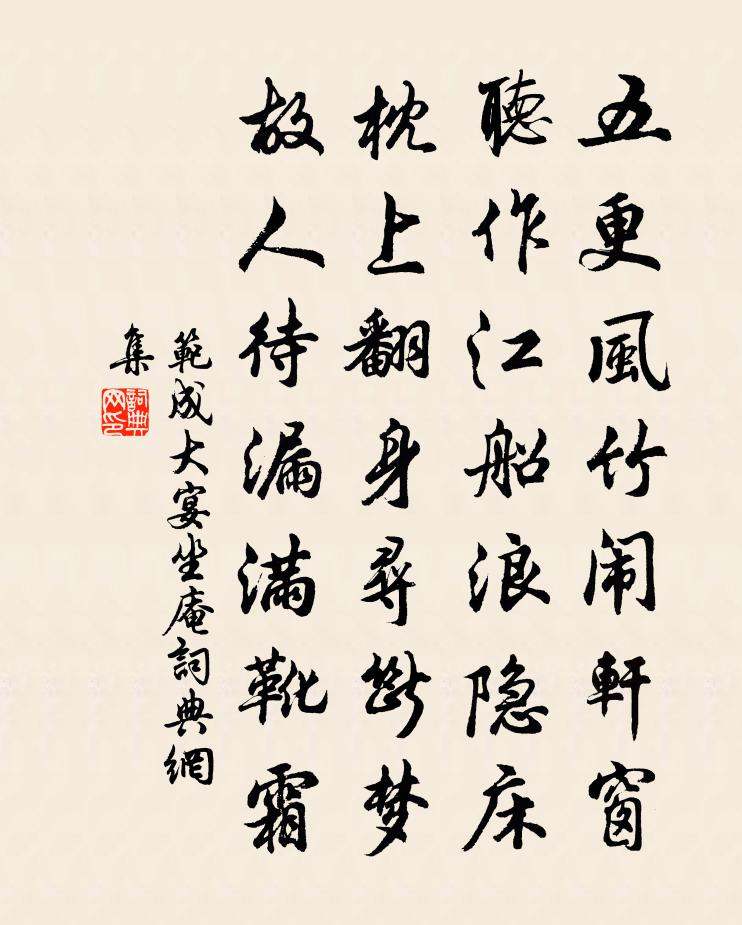 五更風竹闹軒窗
聽作江船浪隐床
枕上翻身尋断梦
故人待漏满靴霜
範成大宴坐庵詞典網
集
詞典网印